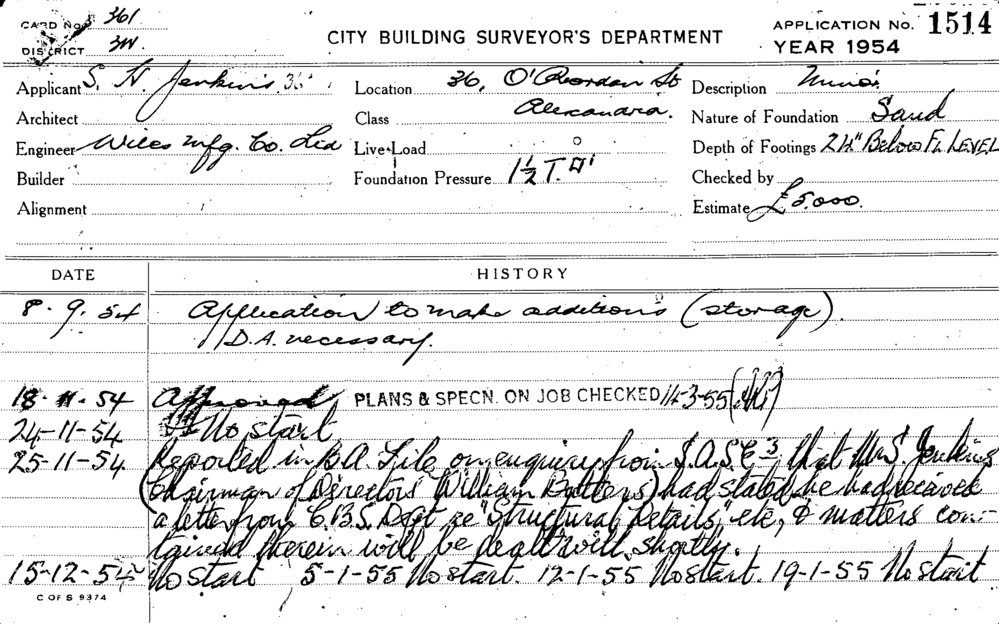 CARD No. 361
DISTRICT 3W.
CITY BUILDING SURVEYOR'S DEPARTMENT
APPLICATION No. 1514
YEAR 1954
Applicant S. N. Jenkins 36
Location 36, O'Riordan St
Alexandria.
Description
Architect
Class
Nature of Foundation Sand
Engineer Wiles Mfg. Co. Ltd
Live-Load
Depth of Footings 2'4" Below Fl. LEVEL
Builder
Foundation Pressure 1½ T.
Checked by
Alignment
Estimate £5.000.
DATE HISTORY
8. 9. 54 Application to make additions (storage).
D.A. necessary.
18. 11. 54 Approved PLANS & SPECN. ON JOB CHECKED 11-3-55
24-11-54 No start
25-11-54 Reported in B.A. File on enquiry from that Mr S Jenkins
(Chairman of Directors William Butters) had stated he had received
a letter from C.B.S. Dept re "Structural Details," etc, & matters con-
tained therein will be dealt will shortly.
15-12-54 No start 5-1-55 No start. 12-1-55 No start. 19-1-55 No start
C OF S 9374